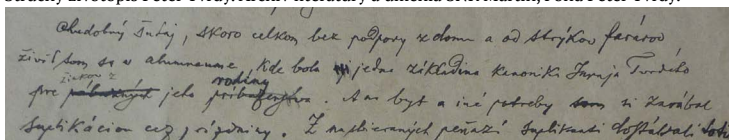 Stručný životopis Peter Tvrdý. Archív literatúry a umenia SNK Martin, Fond Peter Tvrdý.
Chudobný študaj, skoro celkom bez podpory z domu a od strýkov farárov
živil som sa v alumneume, kde bola jedna základina kanonika Juraja Tvrdého
žiakov z rodiny
pre jeho príbuzenstva. A na byt a iné potreby som si zarábal
suplikáciou cez prázdniny. Z nazbieraných peňazí suplikanti dostávali